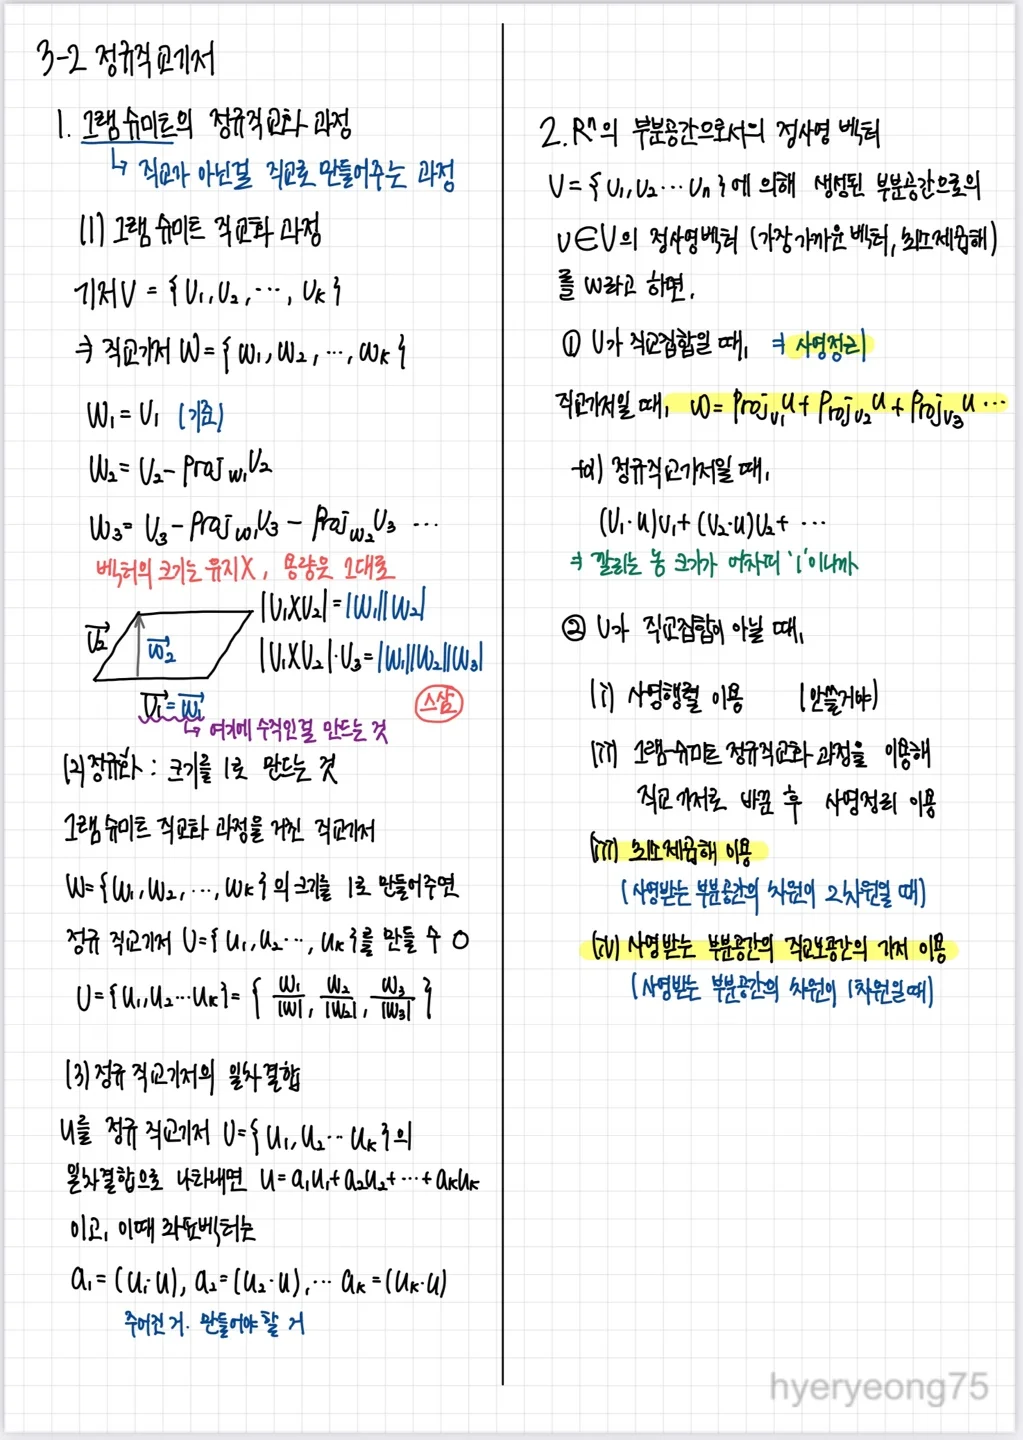 3-2 정규직교기저
1. 그램슈미트의 정규직교화 과정
↳ 직교가 아닌걸 직교로 만들어주는 과정
(1) 그램슈미트 직교화 과정
기저 V = {v₁, v₂, ⋯, vₖ}
⇒ 직교기저 W = {w₁, w₂, ⋯, wₖ}
w₁ = v₁ (기준)
w₂ = v₂ - proj_w₁ v₂
w₃ = v₃ - proj_w₁ v₃ - proj_w₂ v₃ ⋯
벡터의 크기는 유지X, 용량은 그대로
v₂ w₂ |v₁×v₂| = |w₁||w₂|
|v₁×v₂|·v₃ = |w₁||w₂||w₃|
v₁ = w₁ 스삼
↳ 여기에 수직인걸 만드는 것
(2) 정규화 : 크기를 1로 만드는 것
그램슈미트 직교화 과정을 거친 직교기저
W = {w₁, w₂, ⋯, wₖ}의 크기를 1로 만들어주면
정규 직교기저 U = {u₁, u₂ ⋯, uₖ}를 만들 수 O
U = {u₁, u₂ ⋯ uₖ} = { w₁/|w|, w₂/|w₂|, w₃/|w₃| }
(3) 정규 직교기저의 일차결합
u를 정규 직교기저 U = {u₁, u₂ ⋯ uₖ}의
일차결합으로 나타내면 u = a₁u₁ + a₂u₂ + ⋯ + aₖuₖ
이고, 이때 좌표벡터는
a₁ = (u₁·u), a₂ = (u₂·u), ⋯ aₖ = (uₖ·u)
주어진 거· 만들어야 할 거
2. Rⁿ의 부분공간으로서의 정사영 벡터
V = {v₁, v₂ ⋯ vₙ}에 의해 생성된 부분공간으로의
v∈V의 정사영벡터 (가장 가까운 벡터, 최소제곱해)
를 w라고 하면,
① V가 직교집합일 때, ⇒ 사영정리
직교기저일 때, w = proj_v₁ u + proj_v₂ u + proj_v₃ u ⋯
+a) 정규직교기저일 때,
(v₁·u)v₁ + (v₂·u)v₂ + ⋯
⇒ 깔리는 놈 크기가 어차피 '1'이니까
② V가 직교집합이 아닐 때,
(i) 사영행렬 이용 (안쓸거야)
(ii) 그램-슈미트 정규직교화 과정을 이용해
직교 기저로 바꾼 후 사영정리 이용
(iii) 최소제곱해 이용
(사영받는 부분공간의 차원이 2차원일 때)
(iv) 사영받는 부분공간의 직교보공간의 기저 이용
(사영받는 부분공간의 차원이 1차원일 때)
hyeryeong75